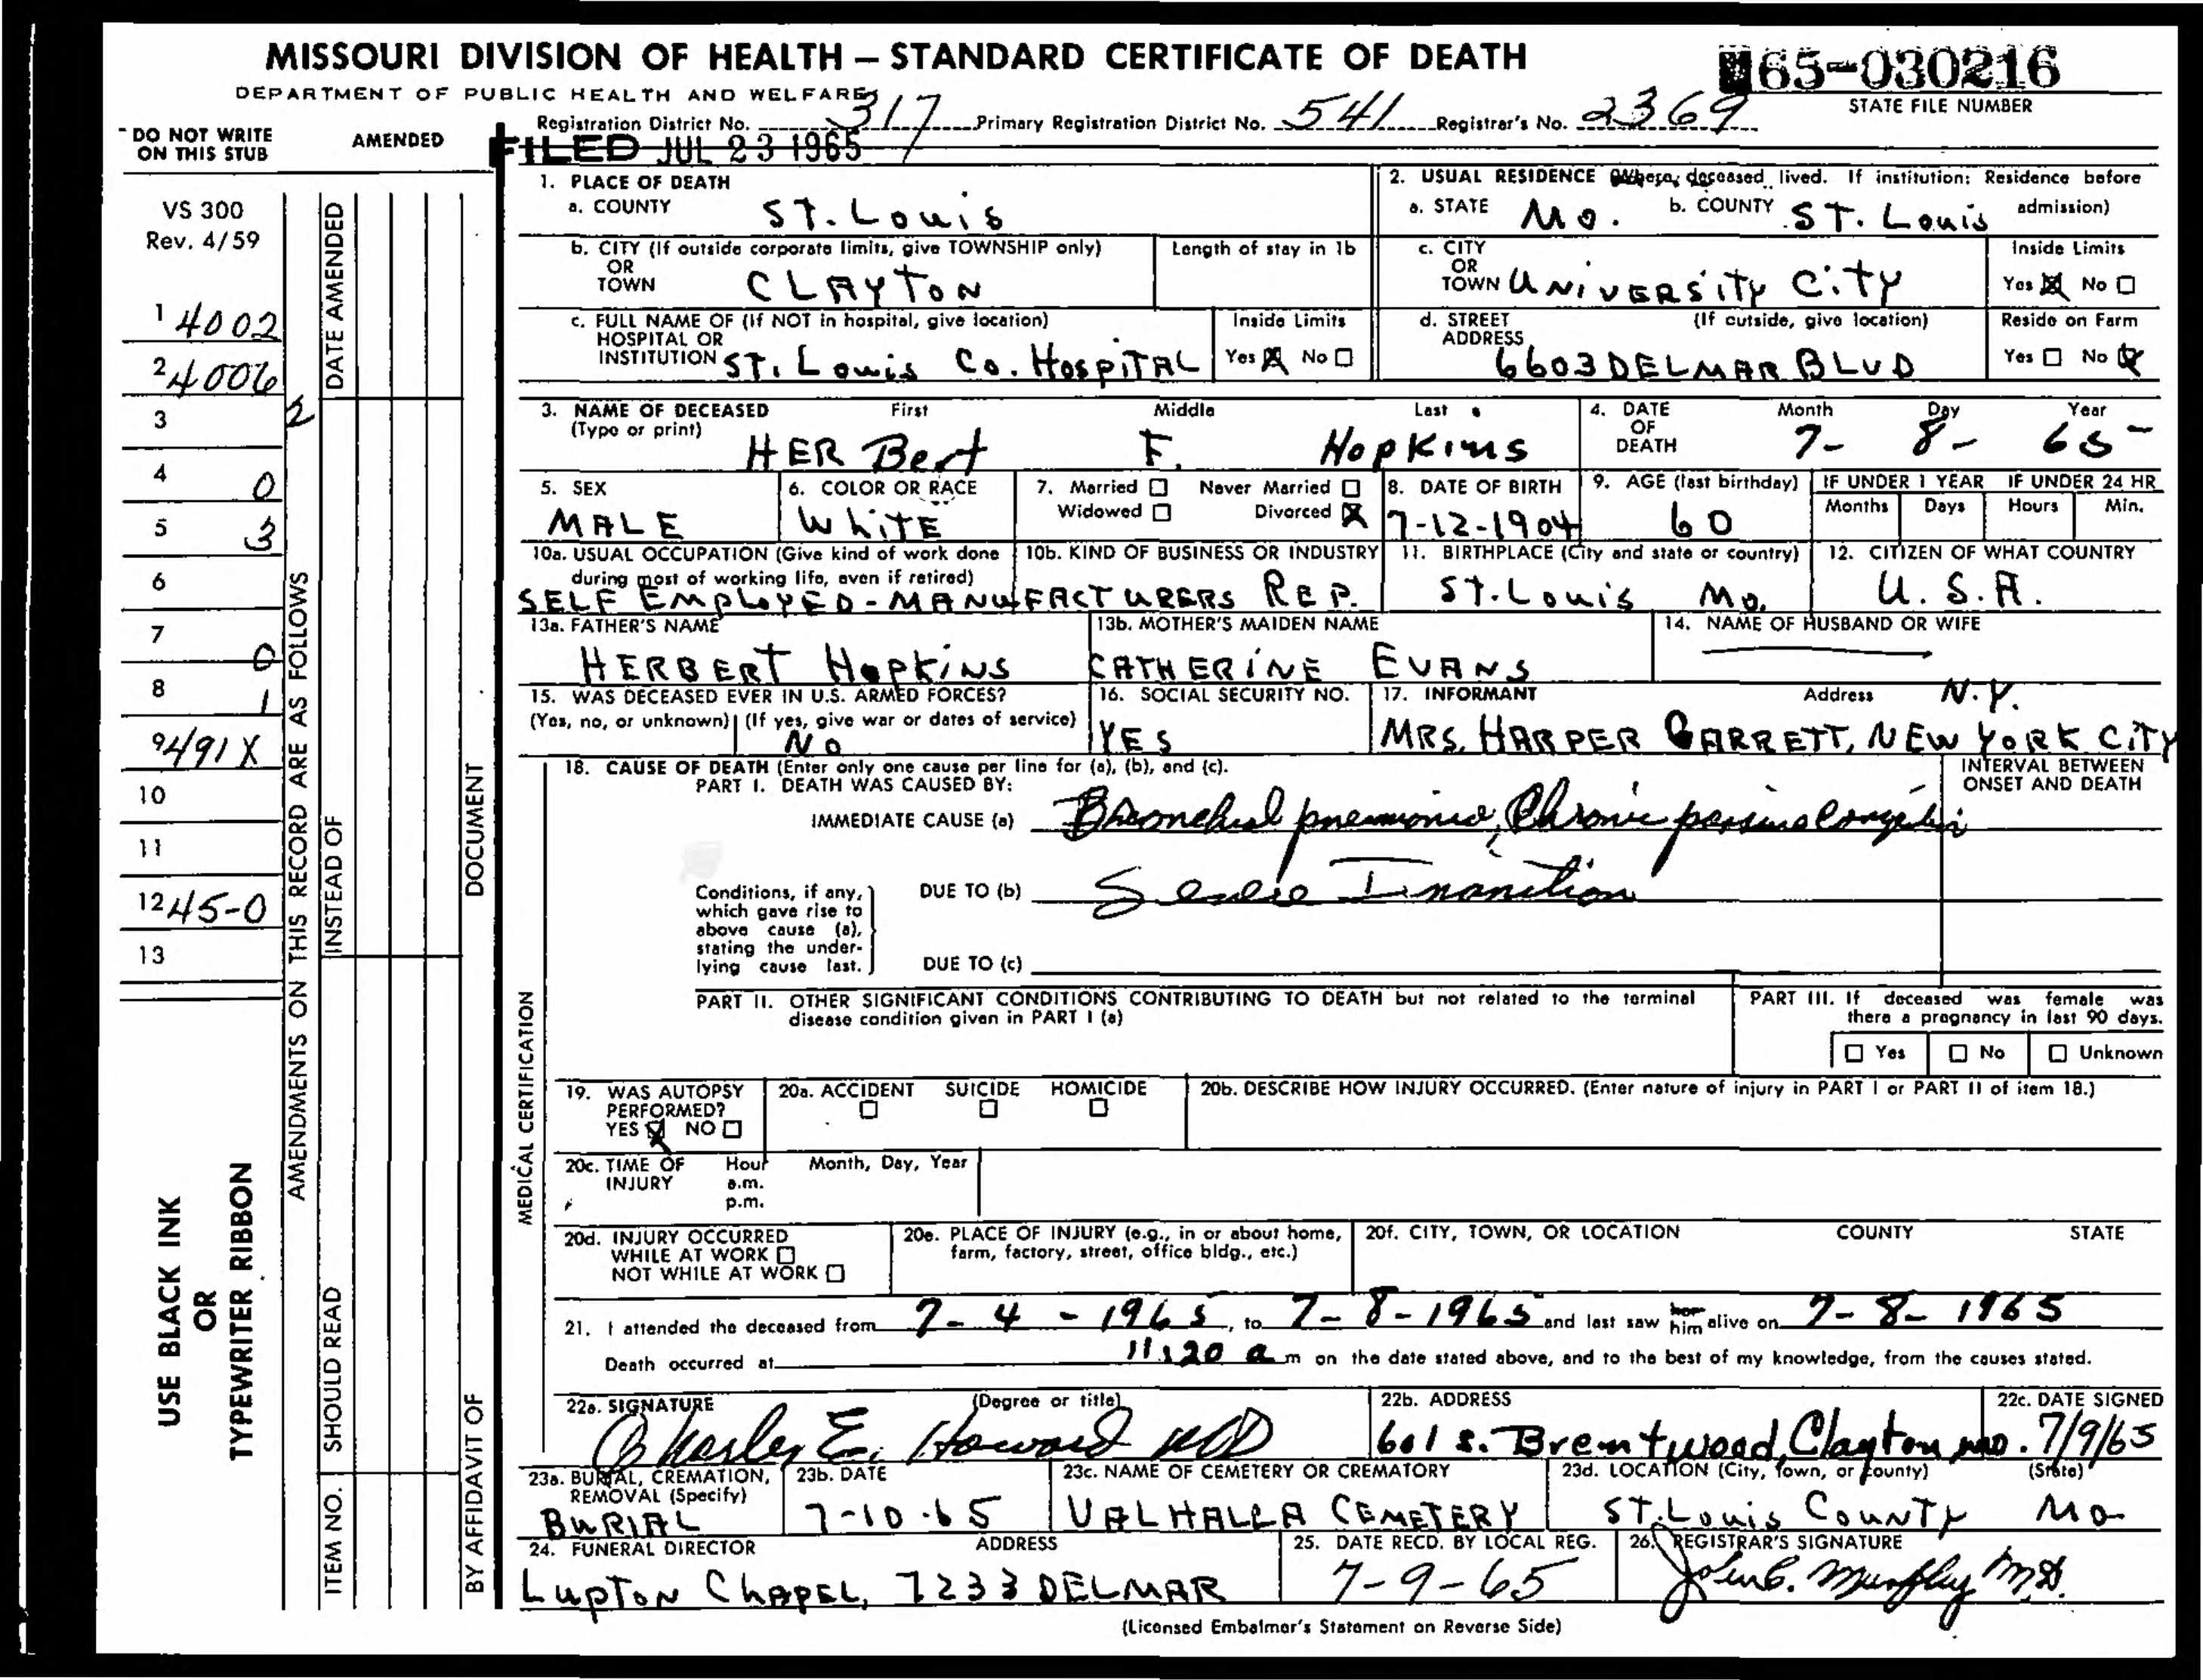 MISSOURI DIVISION OF HEALTH — STANDARD CERTIFICATE OF DEATH
65-030216
DEPARTMENT OF PUBLIC HEALTH AND WELFARE
STATE FILE NUMBER
Registration District No. 317 Primary Registration District No. 541 Registrar's No. 2369
FILED JUL 23 1965
DO NOT WRITE
ON THIS STUB
AMENDED
VS 300
Rev. 4/59
1 4002
2 4006
3 2
4 0
5 3
6
7 0
8 1
9 491X
10
11
12 45-0
13
USE BLACK INK
OR
TYPEWRITER RIBBON
AMENDMENTS ON THIS RECORD ARE AS FOLLOWS
DATE AMENDED
INSTEAD OF
SHOULD READ
ITEM NO.
DOCUMENT
BY AFFIDAVIT OF
1. PLACE OF DEATH
a. COUNTY ST. Louis
2. USUAL RESIDENCE (Where deceased lived. If institution: Residence before
admission)
a. STATE Mo. b. COUNTY ST. Louis
b. CITY (If outside corporate limits, give TOWNSHIP only)
OR
TOWN CLAYTON
Length of stay in 1b
c. CITY
OR
TOWN UNIVERSITY CITY
Inside Limits
Yes ☒ No ☐
c. FULL NAME OF (If NOT in hospital, give location)
HOSPITAL OR
INSTITUTION ST. Louis Co. HOSPITAL
Inside Limits
Yes ☒ No ☐
d. STREET (If outside, give location)
ADDRESS
6603 DELMAR BLVD
Reside on Farm
Yes ☐ No ☒
3. NAME OF DECEASED First Middle Last
(Type or print)
HERBert F. Hopkins
4. DATE OF DEATH Month Day Year
7- 8- 65
5. SEX
MALE
6. COLOR OR RACE
White
7. Married ☐ Never Married ☐
Widowed ☐ Divorced ☒
8. DATE OF BIRTH
7-12-1904
9. AGE (last birthday)
60
IF UNDER 1 YEAR IF UNDER 24 HR
Months Days Hours Min.
10a. USUAL OCCUPATION (Give kind of work done
during most of working life, even if retired)
10b. KIND OF BUSINESS OR INDUSTRY
SELF EMPLOYED - MANUFACTURERS REP.
11. BIRTHPLACE (City and state or country)
ST. Louis Mo.
12. CITIZEN OF WHAT COUNTRY
U.S.A.
13a. FATHER'S NAME
HERBERT HOPKINS
13b. MOTHER'S MAIDEN NAME
CATHERINE EVANS
14. NAME OF HUSBAND OR WIFE
15. WAS DECEASED EVER IN U.S. ARMED FORCES?
(Yes, no, or unknown) (If yes, give war or dates of service)
No
16. SOCIAL SECURITY NO.
YES
17. INFORMANT Address N.Y.
MRS. HARPER GARRETT, NEW YORK CITY
MEDICAL CERTIFICATION
18. CAUSE OF DEATH (Enter only one cause per line for (a), (b), and (c).
PART I. DEATH WAS CAUSED BY:
INTERVAL BETWEEN
ONSET AND DEATH
IMMEDIATE CAUSE (a) Bronchial pneumonia, Chronic passive congestion
Conditions, if any,
which gave rise to
above cause (a),
stating the under-
lying cause last.
DUE TO (b) Senile Inanition
DUE TO (c)
PART II. OTHER SIGNIFICANT CONDITIONS CONTRIBUTING TO DEATH but not related to the terminal
disease condition given in PART I (a)
PART III. If deceased was female was
there a pregnancy in last 90 days.
☐ Yes ☐ No ☐ Unknown
19. WAS AUTOPSY
PERFORMED?
YES ☒ NO ☐
20a. ACCIDENT SUICIDE HOMICIDE
☐ ☐ ☐
20b. DESCRIBE HOW INJURY OCCURRED. (Enter nature of injury in PART I or PART II of item 18.)
20c. TIME OF Hour Month, Day, Year
INJURY a.m.
p.m.
20d. INJURY OCCURRED
WHILE AT WORK ☐
NOT WHILE AT WORK ☐
20e. PLACE OF INJURY (e.g., in or about home,
farm, factory, street, office bldg., etc.)
20f. CITY, TOWN, OR LOCATION COUNTY STATE
21. I attended the deceased from 7-4-1965, to 7-8-1965 and last saw her him alive on 7-8-1965
Death occurred at 11:20 a m on the date stated above, and to the best of my knowledge, from the causes stated.
22a. SIGNATURE (Degree or title)
Charles E. Howard MD
22b. ADDRESS
601 S. Brentwood, Clayton, mo.
22c. DATE SIGNED
7/9/65
23a. BURIAL, CREMATION,
REMOVAL (Specify)
BURIAL
23b. DATE
7-10-65
23c. NAME OF CEMETERY OR CREMATORY
VALHALLA CEMETERY
23d. LOCATION (City, town, or county) (State)
ST. Louis COUNTY Mo
24. FUNERAL DIRECTOR ADDRESS
Lupton Chapel, 7233 DELMAR
25. DATE RECD. BY LOCAL REG.
7-9-65
26. REGISTRAR'S SIGNATURE
John C. Murphy M.D.
(Licensed Embalmer's Statement on Reverse Side)